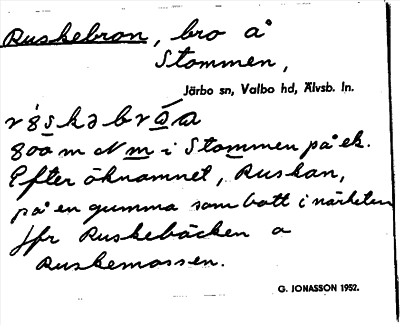 Ruskebron, bro å
Stommen,
Järbo sn, Valbo hd, Älvsb. ln.
800 m N m i Stommen på ek.
Efter öknamnet, Ruskan,
på en gumma som bott i närheten
Jfr Ruskebäcken o
Ruskemossen.
G. JONASSON 1952.